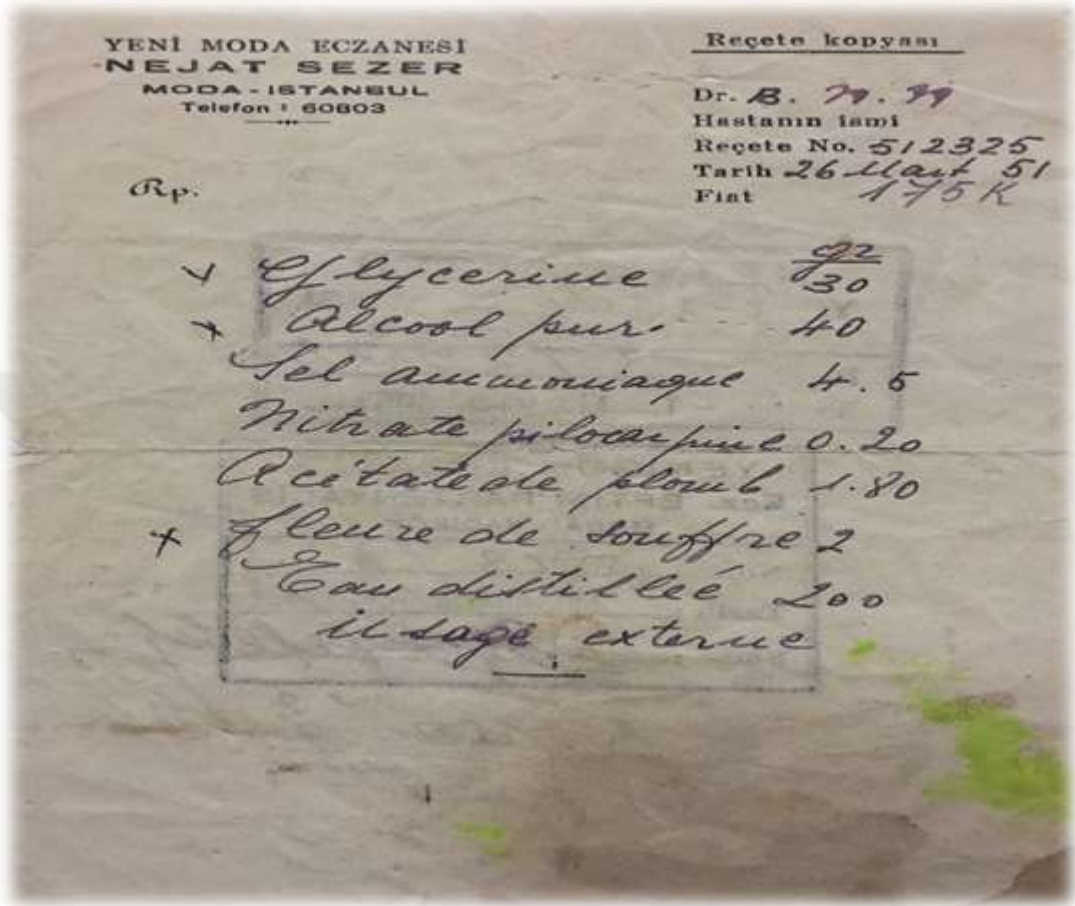 YENİ MODA ECZANESİ
NEJAT SEZER
MODA - ISTANBUL
Telefon : 60803
Reçete kopyası
Dr. B.
Hastanın ismi
Reçete No. 512325
Tarih 26 Mart 51
Fiat 175 K
Rp.
gr
Glycerine 30
Alcool pur. 40
Sel ammoniaque 4.5
Nitrate pilocarpine 0.20
Acétate de plomb 1.80
fleure de souffre 2
Eau distilleé 200
usage externe